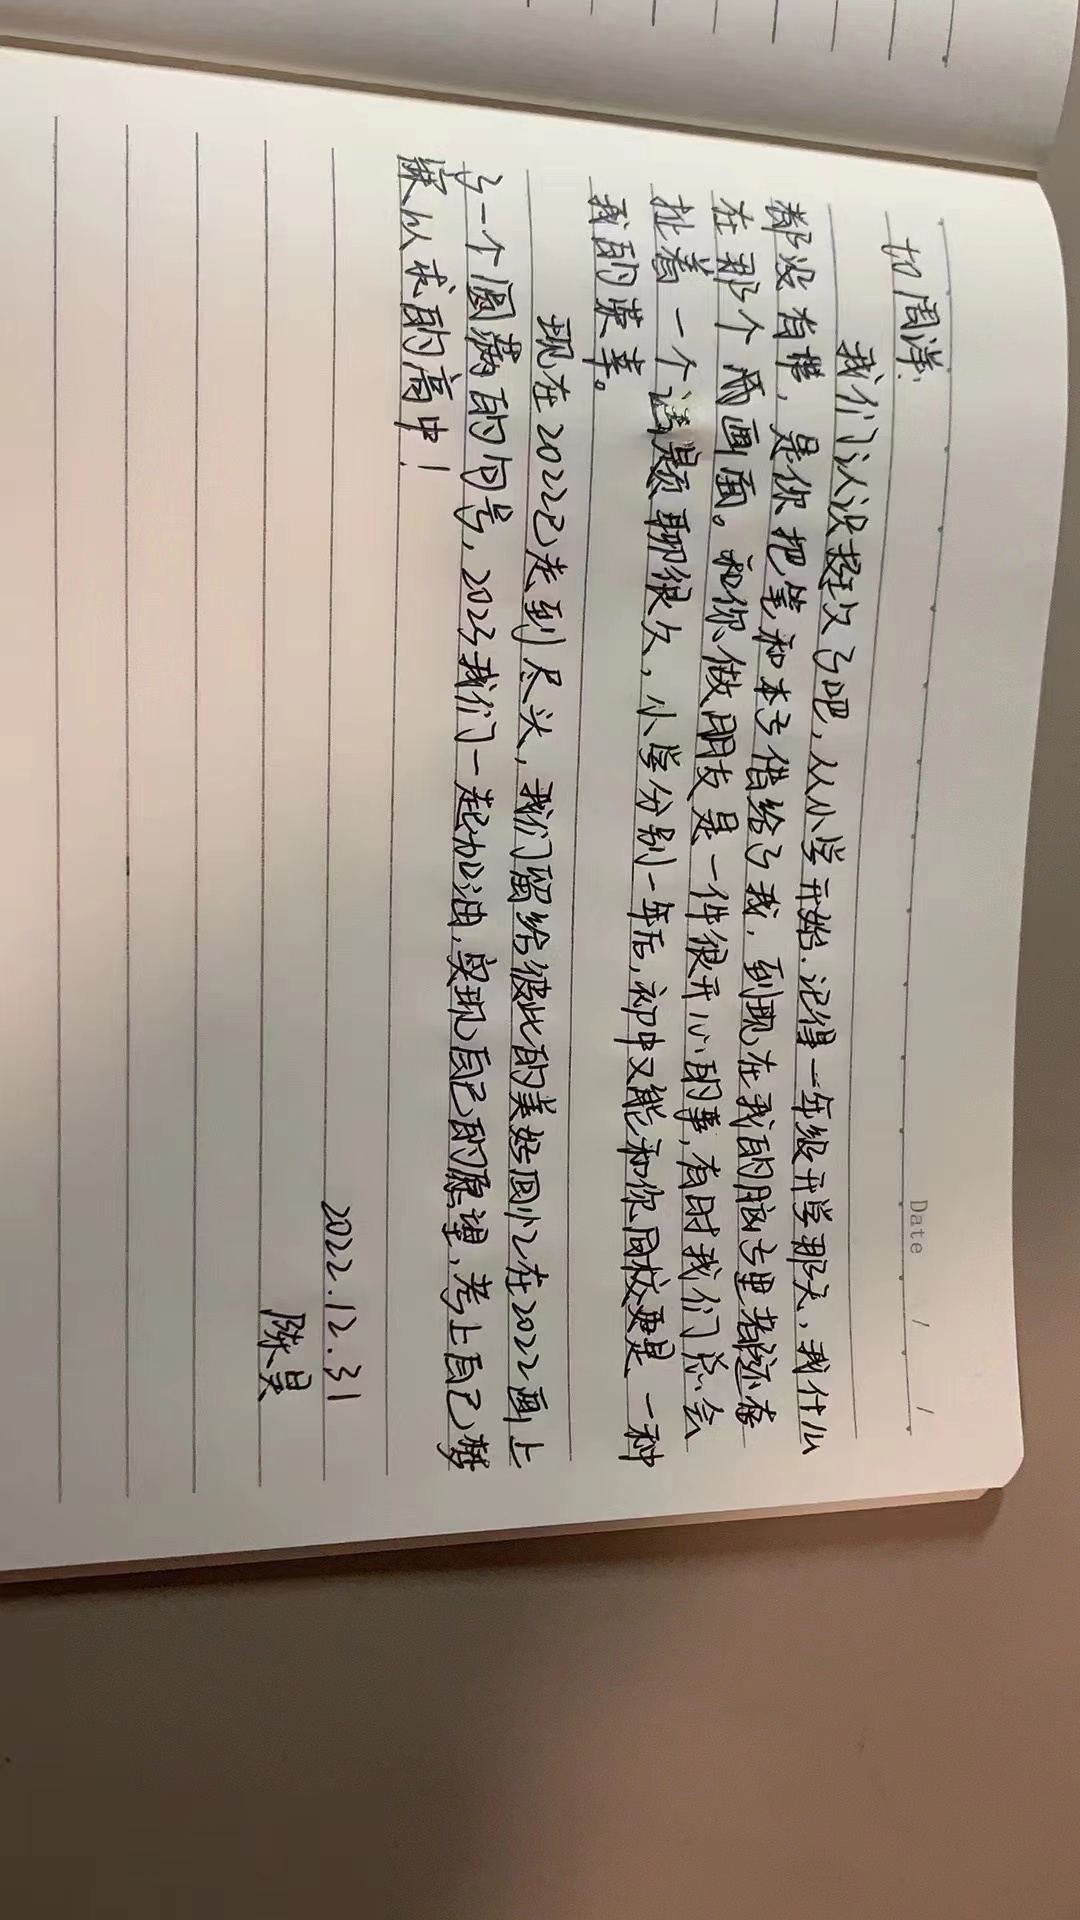 Date / /
to 周洋:
我们认识挺久了吧,从小学开始.记得一年级开学那天,我什么
都没有带,是你把笔和本子借给了我,到现在我的脑子里都还存
在那个画面。和你做朋友是一件很开心的事,有时我们总会
扯着一个话题聊很久,小学分别一年后,初中又能和你同校更是一种
我的荣幸。
现在2022已走到尽头,我们留给彼此的美好回忆在2022画上
了一个圆满的句号,2023我们一起加油,实现自己的愿望,考上自己梦
寐以求的高中!
2022.12.31
陈昊